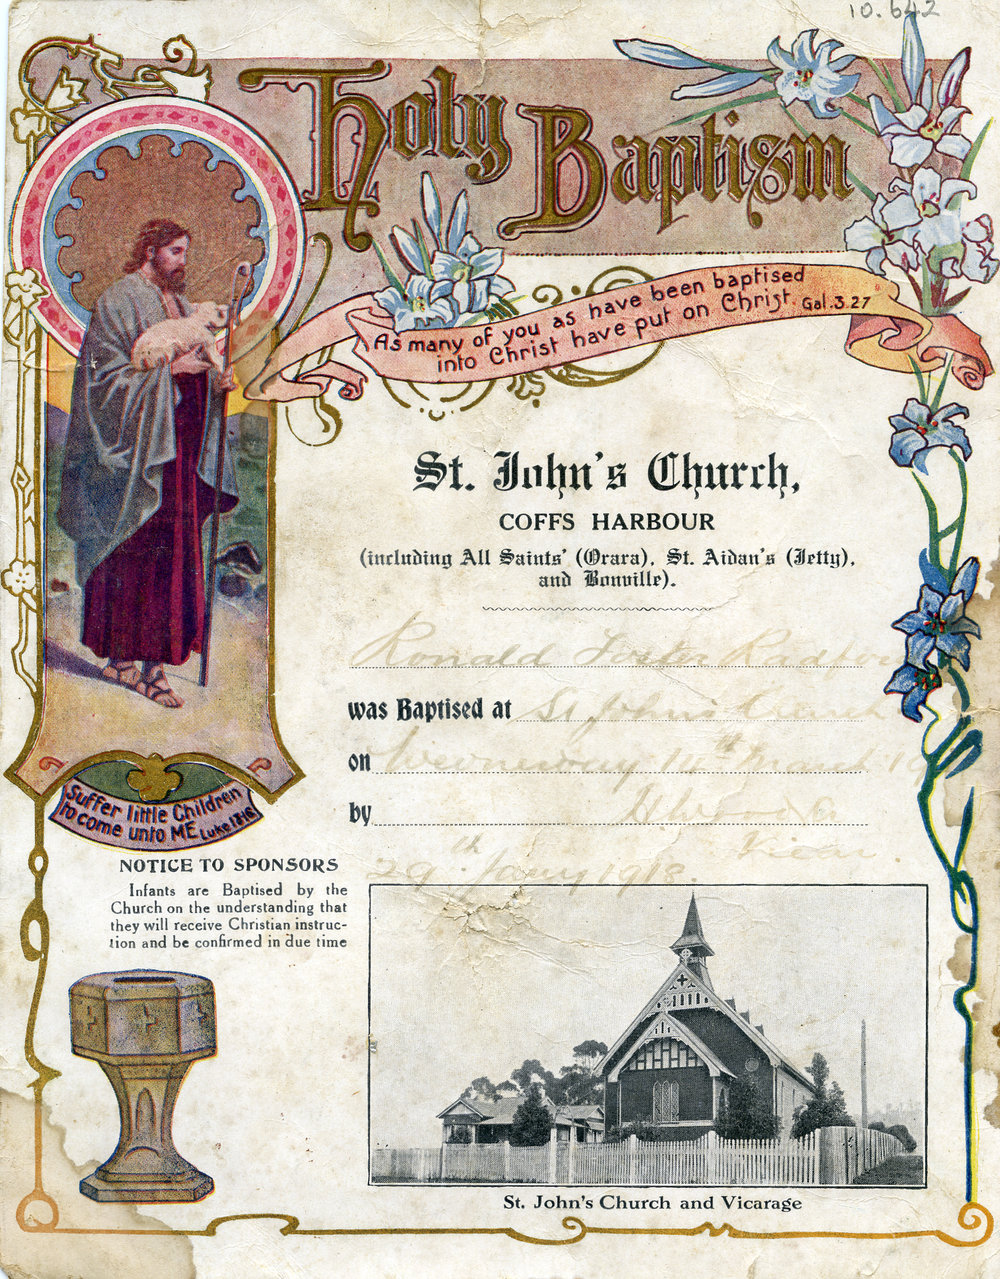 10.642
Holy Baptism
As many of you as have been baptised
into Christ have put on Christ. Gal. 3.27
St. John's Church,
COFFS HARBOUR
(including All Saints' (Orara), St. Aidan's (Jetty),
and Bonville).
Ronald Foster Radfor
was Baptised at St Johns Church
on Wednesday 14th March 19
by
Vicar.
29th Jany 1918.
Suffer little Children
to come unto ME Luke 18-16
NOTICE TO SPONSORS
Infants are Baptised by the
Church on the understanding that
they will receive Christian instruc-
tion and be confirmed in due time
St. John's Church and Vicarage